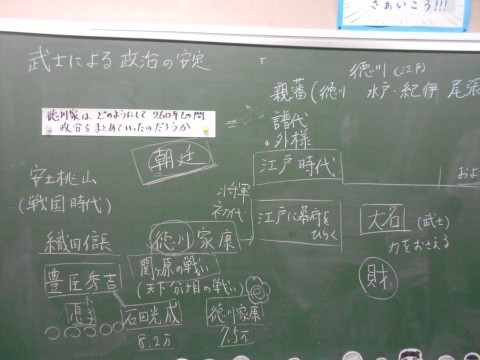 さぁいこう!!!
武士による政治の安定
徳川家は どのようにして 260年もの間
政治をまとめていったのだろうか
朝廷
徳川(江戸)
親藩(徳川 水戸・紀伊 尾張
譜代
外様
江戸時代
およ
安土桃山
(戦国時代)
将軍
初代
織田信長
徳川家康
江戸に幕府を
ひらく
大名(武士)
力をおさえる
財
豊臣秀吉
関ヶ原の戦い
(天下分け目の戦い)
石田光成
8.2万
徳川家康
7.5万